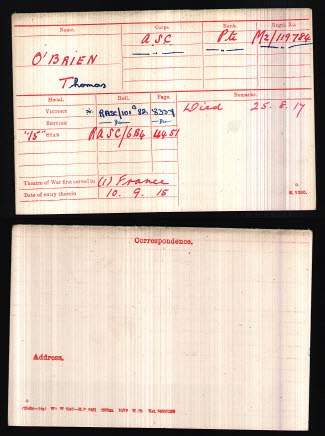 Name. Corps. Rank. Regtl. No.
O'BRIEN A.S.C. Pte M2/119784
Thomas
Medal. Roll. Page. Remarks.
VICTORY RASC/101 B2 8334 Died 25.8.17
BRITISH — Do — — Do —
"15" STAR RASC/6B4 4451
Theatre of War first served in (1) France
Date of entry therein 10. 9. 15
Correspondence.
Address.